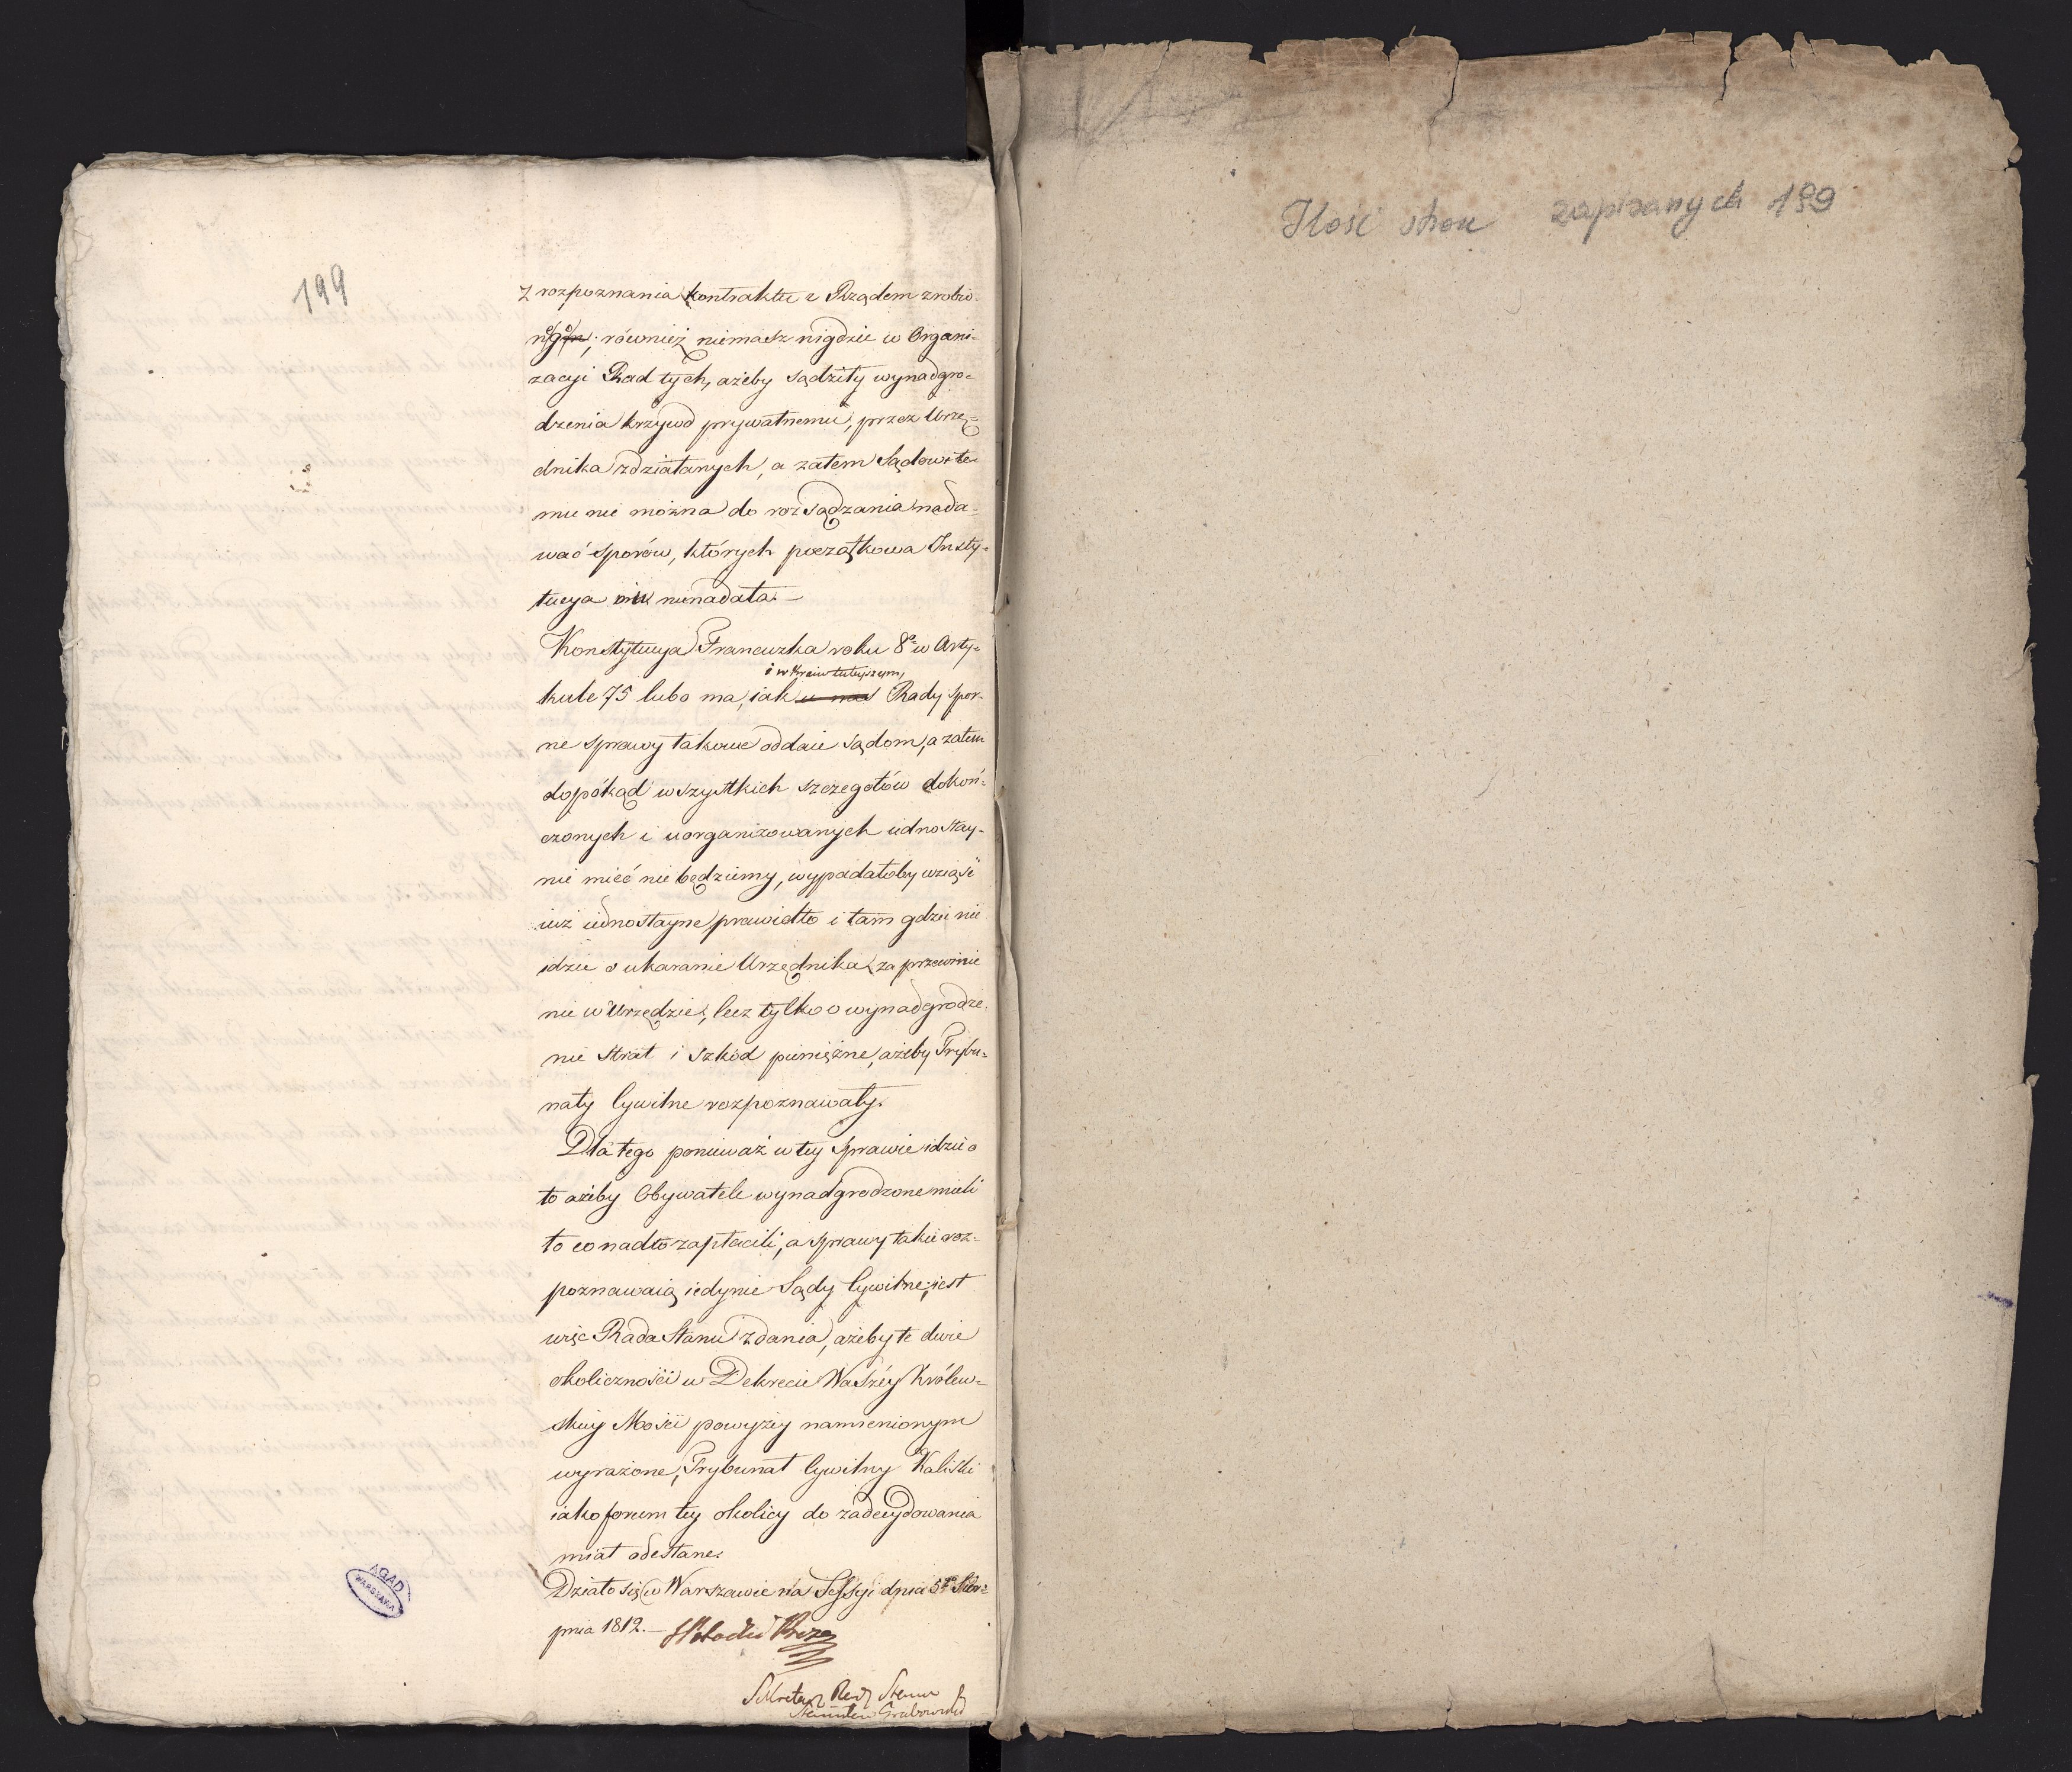 199
z rozpoznania kontraktu z Rządem zrobio-
nego; również niemasz nigdzie w Organi-
zacyi Rad tych, ażeby sądziły wynadgro-
dzenia krzywd prywatnemu, przez Urzę-
dnika zdziałanych, a zatem Sądowi te-
mu nie można do rozsądzania nada-
wać sporów, których początkowa Insty-
tucya nienadała.—
Konstytucya Francuzka roku 8º w Arty-
i w Kraiu tutejszym,
kule 75 lubo ma, iak u nas Rady spor-
ne sprawy takowe oddaie sądom, a zatem
dopókąd wszystkich szczegółów dokoń-
czonych i uorganizowanych iednostay-
nie mieć nie będziemy, wypadałoby wziąść
iuż iednostayne prawidło i tam gdzie nie
idzie o ukaranie Urzędnika za przewinie
nie w Urzędzie, lecz tylko o wynadgrodze-
nie strat i szkód pieniężne, ażeby Trybu-
nały Cywilne rozpoznawały.
Dla tego ponieważ w tey sprawie idzie o
to ażeby Obywatele wynadgrodzone mieli
to co nadto zapłacili, a sprawy takie roz-
poznawaią iedynie Sądy Cywilne; iest
więc Rada Stanu zdania, ażeby te dwie
okoliczności w Dekrecie Waszéy Królew-
skiey Mości powyżey namienionym
wyrażone, Trybunał Cywilny Kaliski
iako forum tey okolicy do zadecydowania
miał odesłane.
Działo się w Warszawie na Sessyi dnia 5º Sier-
pnia 1812.—
Sekretarz Rady Stanu
Stanisław Grabowski
AGAD
WARSZAWA
Ilość stron zapisanych 199